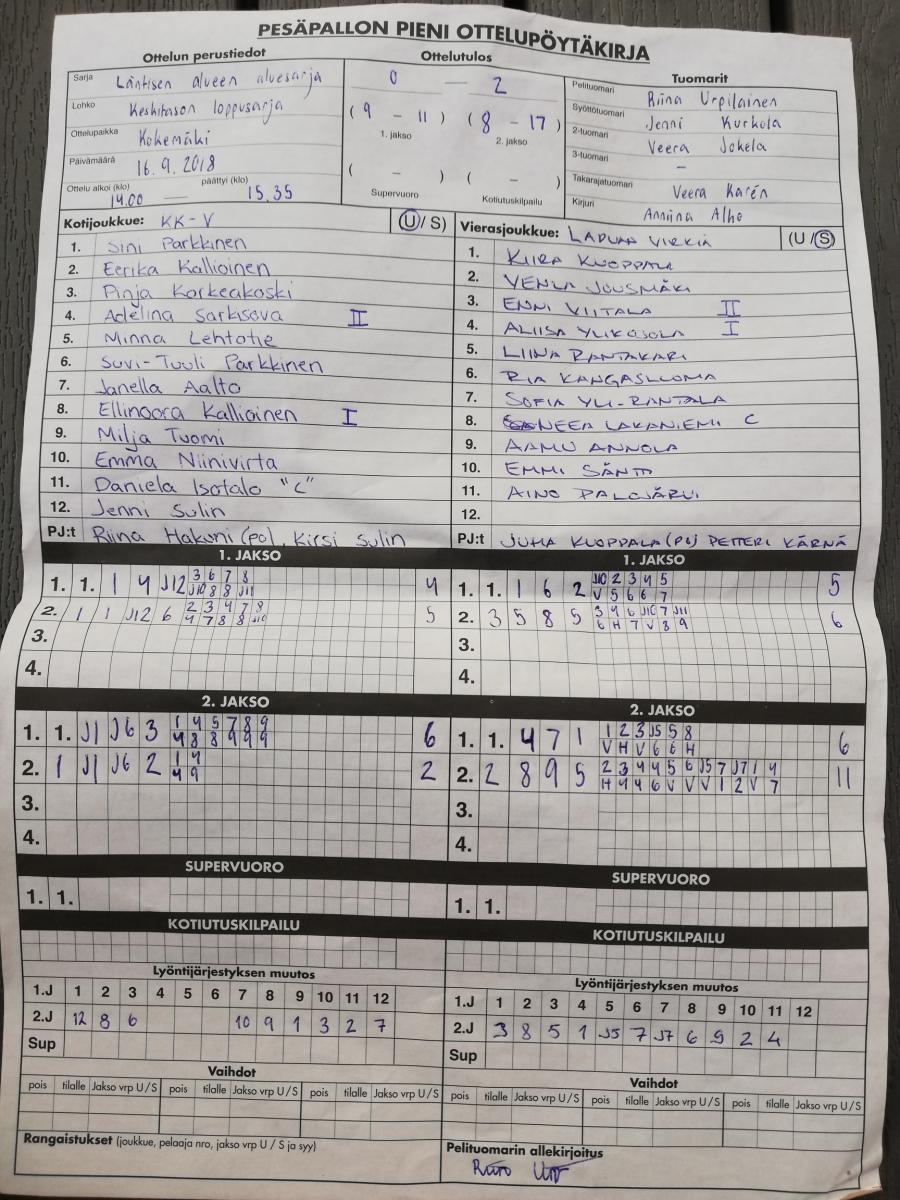 PESÄPALLON PIENI OTTELUPÖYTÄKIRJA
Ottelun perustiedot
Sarja Läntisen alueen aluesarja
Lohko Keskitason loppusarja
Ottelupaikka Kokemäki
Päivämäärä 16.9.2018
Ottelu alkoi (klo) päättyi (klo)
14.00 — 15.35
Ottelutulos
0 — 2
( 9 - 11 ) ( 8 - 17 )
1. jakso 2. jakso
( - ) ( - )
Supervuoro Kotiutuskilpailu
Tuomarit
Pelituomari Riina Urpilainen
Syöttötuomari Jenni Kurhola
2-tuomari Veera Jokela
3-tuomari -
Takarajatuomari Veera Karén
Kirjuri Anniina Alho
Kotijoukkue: KK-V (U/S)
1. Sini Parkkinen
2. Eerika Kallioinen
3. Pinja Korkeakoski
4. Adelina Sarkisova II
5. Minna Lehtotie
6. Suvi-Tuuli Parkkinen
7. Janella Aalto
8. Ellinoora Kallioinen I
9. Milja Tuomi
10. Emma Niinivirta
11. Daniela Isotalo "C"
12. Jenni Sulin
PJ:t Riina Hakuni (pj), Kirsi Sulin
Vierasjoukkue: LAPUAN VIRKIÄ (U/S)
1. KIIRA KUOPPALA
2. VENLA JOUSMÄKI
3. ENNI VIITALA II
4. ALIISA YLIKOJOLA I
5. LIINA RANTAKARI
6. RIA KANGASLUOMA
7. SOFIA YLI-RANTALA
8. NEEA LAKANIEMI C
9. AAMU ANNOLA
10. EMMI SÄNTI
11. AINO PALOJÄRVI
12.
PJ:t JUHA KUOPPALA (PJ) PETTERI KÄRNÄ
1. JAKSO
1. 1. 1 4 J12 3 6 7 8 4
J10 8 8 J11
2. 1 1 J12 6 2 3 4 7 8 5
4 7 8 8 J10
3.
4.
1. JAKSO
1. 1. 1 6 2 J10 2 3 4 5 5
V 5 6 6 7
2. 3 5 8 5 3 4 6 J10 7 J11 6
6 H 7 V 8 9
3.
4.
2. JAKSO
1. 1. J1 J6 3 1 4 5 7 8 9 6
4 8 8 9 9 9
2. 1 J1 J6 2 1 4 2
4 9
3.
4.
2. JAKSO
1. 1. 4 7 1 1 2 3 J5 5 8 6
V H V 6 6 H
2. 2 8 9 5 2 3 4 4 5 6 J5 7 J7 1 4 11
H 4 4 6 V V V 1 2 V 7
3.
4.
SUPERVUORO
1. 1.
SUPERVUORO
1. 1.
KOTIUTUSKILPAILU
KOTIUTUSKILPAILU
Lyöntijärjestyksen muutos
1.J 1 2 3 4 5 6 7 8 9 10 11 12
2.J 12 8 6 10 9 1 3 2 7
Sup
Lyöntijärjestyksen muutos
1.J 1 2 3 4 5 6 7 8 9 10 11 12
2.J 3 8 5 1 J5 7 J7 6 9 2 4
Sup
Vaihdot
pois tilalle Jakso vrp U/S pois tilalle Jakso vrp U/S pois tilalle Jakso vrp U/S
Vaihdot
pois tilalle Jakso vrp U/S pois tilalle Jakso vrp U/S pois tilalle Jakso vrp U/S
Rangaistukset (joukkue, pelaaja nro, jakso vrp U / S ja syy)
Pelituomarin allekirjoitus